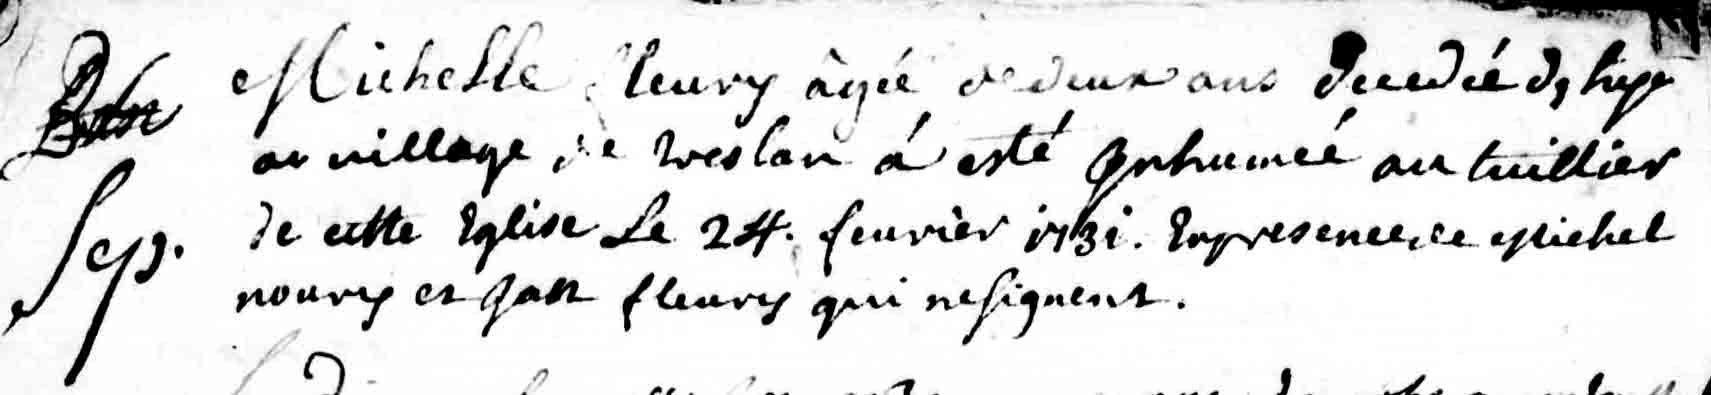 Michelle fleury âgée de deux ans decedée d'hyer
Sep. au village de treslan á esté Inhumée au tuillier
de cette Eglise Le 24. feurier 1731. En presence de Michel
noury et Jan fleury qui ne signent.